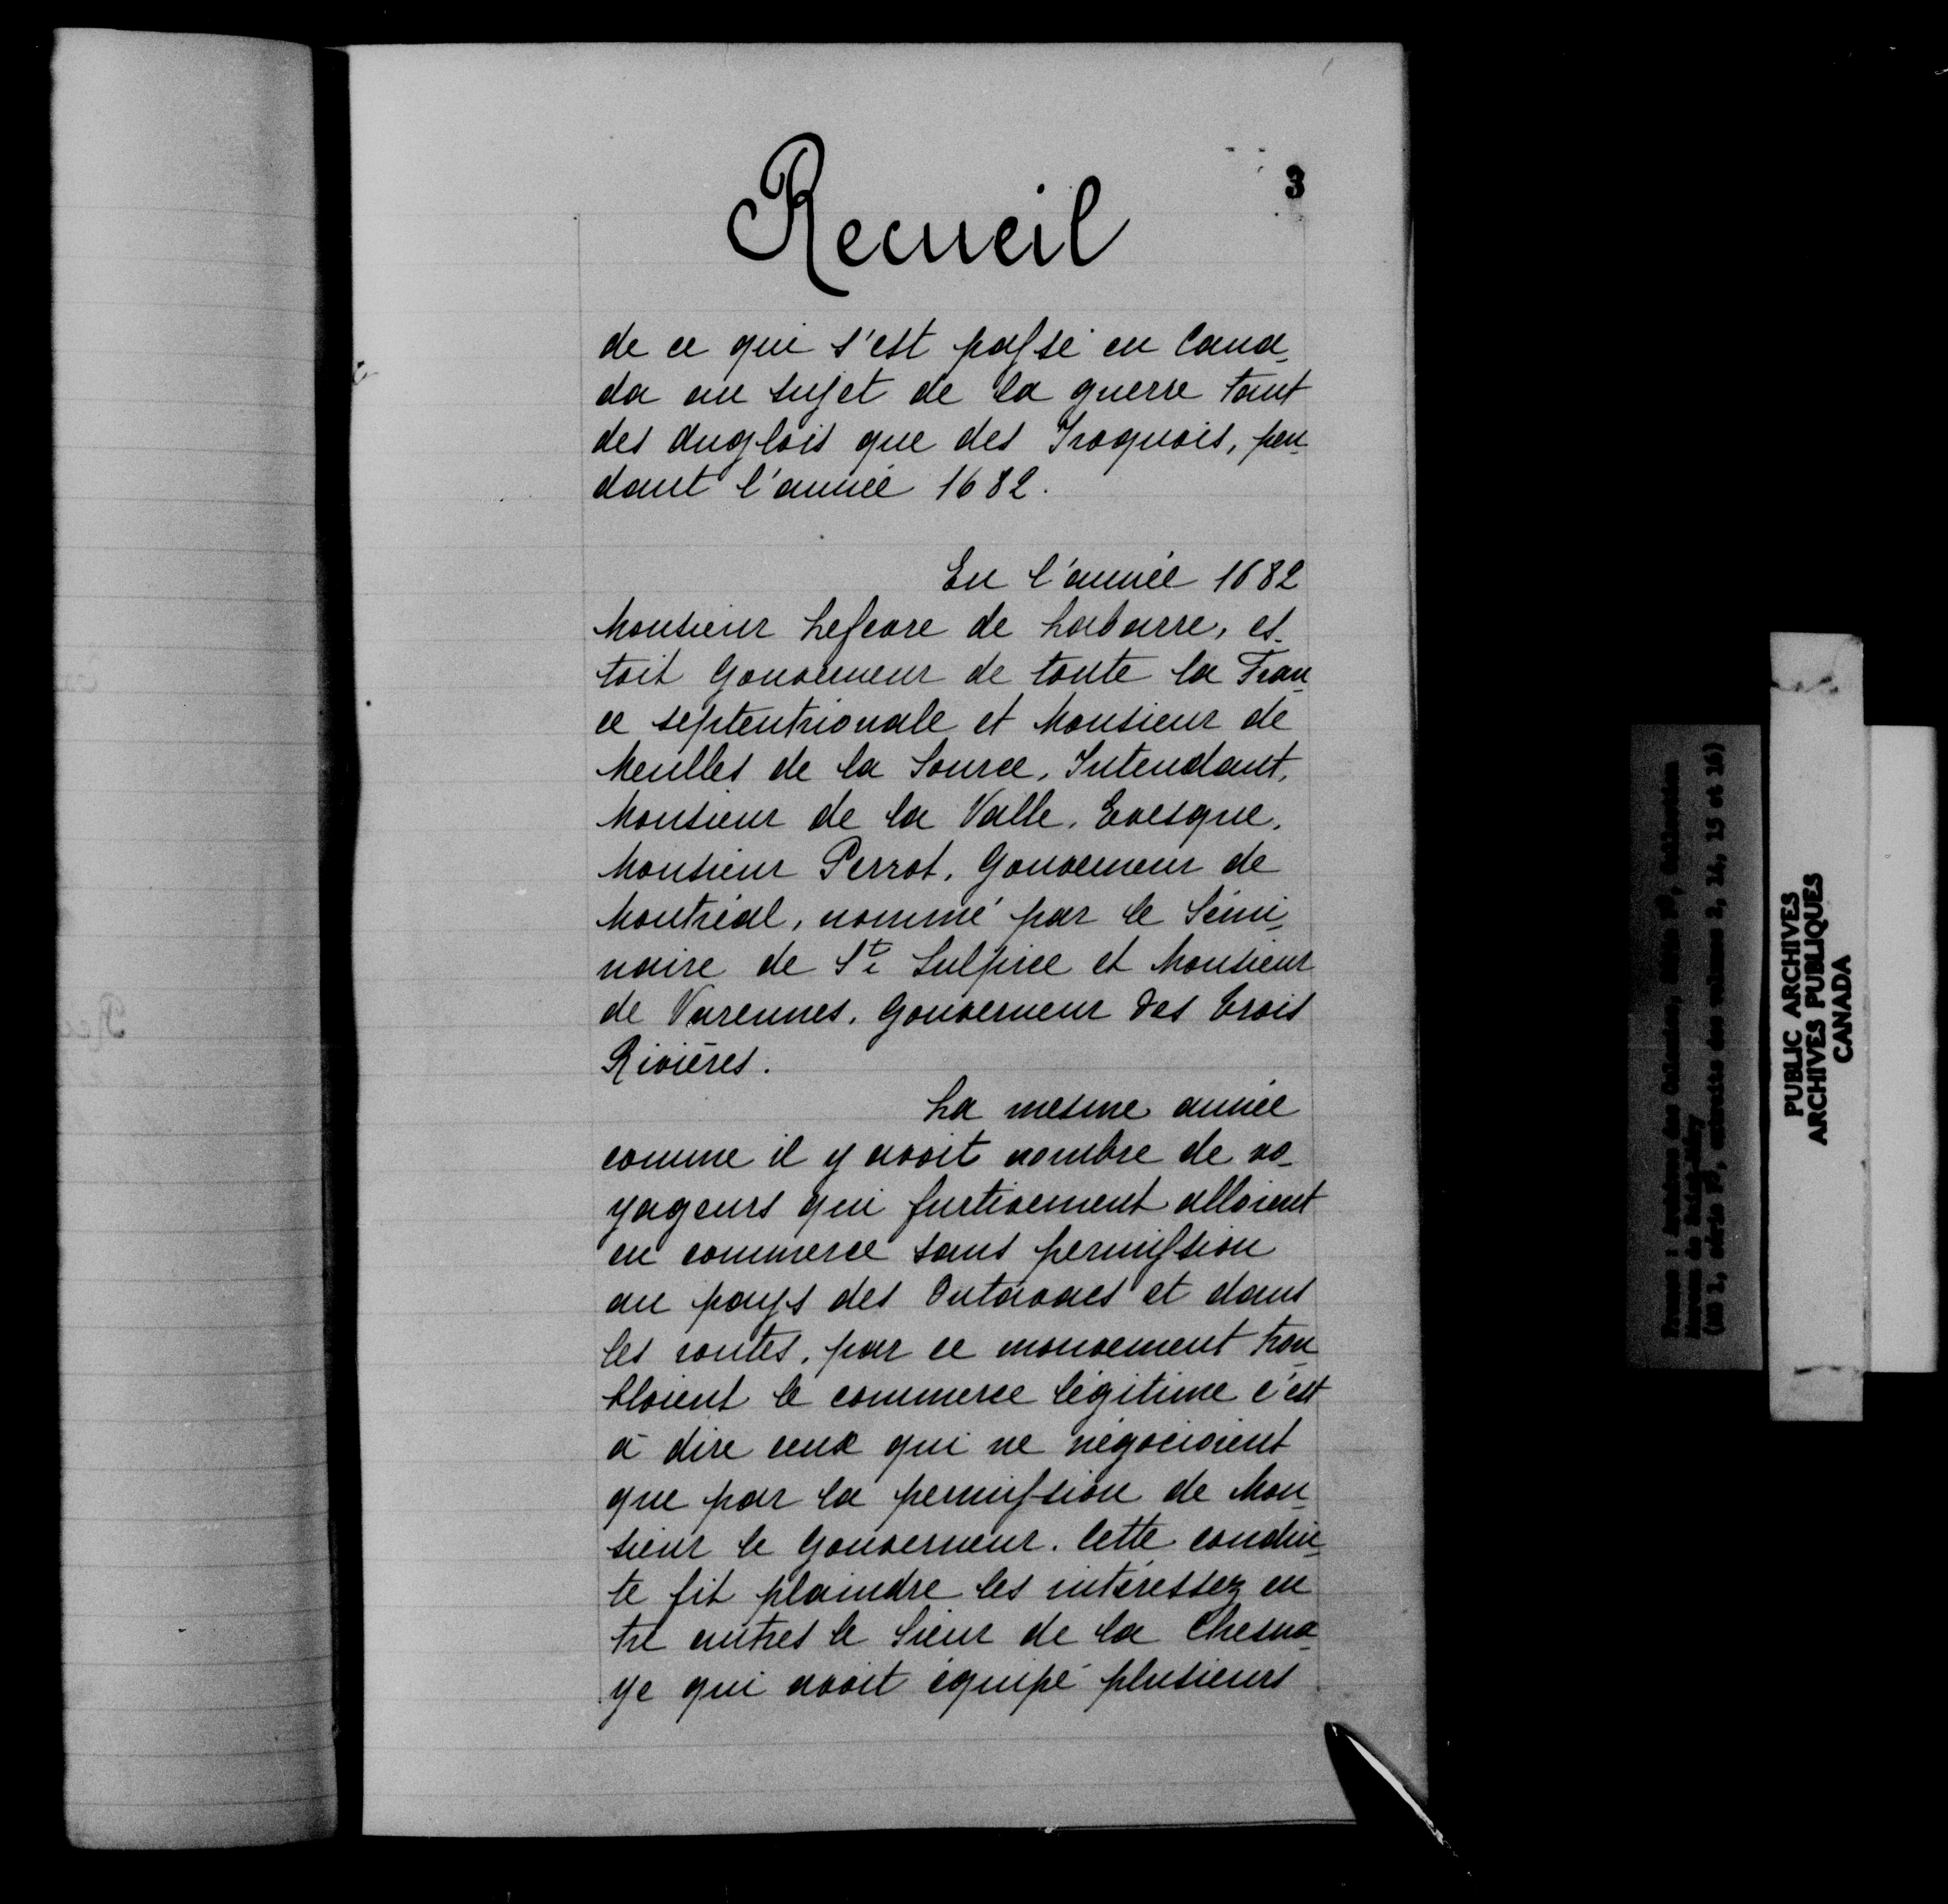 3
Recueil
de ce qui s'est passé en Cana-
da au sujet de la guerre tant
des Anglois que des Iroquois, pen-
dant l'année 1682.
En l'année 1682
Monsieur Lefevre de Labarre, es-
toit Gouverneur de toute la Fran-
ce septentrionale et Monsieur de
Meulles de la Source, Intendant,
Monsieur de la Valle, Evesque,
Monsieur Perrot, Gouverneur de
Montréal, nommé par le Sémi-
naire de St Sulpice et Monsieur
de Varennes, Gouverneur des trois
Rivières.
La mesme année
comme il y avoit nombre de vo-
yageurs qui furtivement alloient
en commerce sans permission
au pays des Outavacs et dans
les routes, par ce mouvement trou-
bloient le commerce légitime c'est
à dire ceux qui ne négocioient
que par la permission de Mon-
sieur le Gouverneur. Cette condui-
te fit plaindre les intéressez en
tre autres le Sieur de la Chesna-
ye qui avoit équipé plusieurs
PUBLIC ARCHIVES
ARCHIVES PUBLIQUES
CANADA
(MG 1, série F3, extraits des volumes 2, 14, 15 et 16)